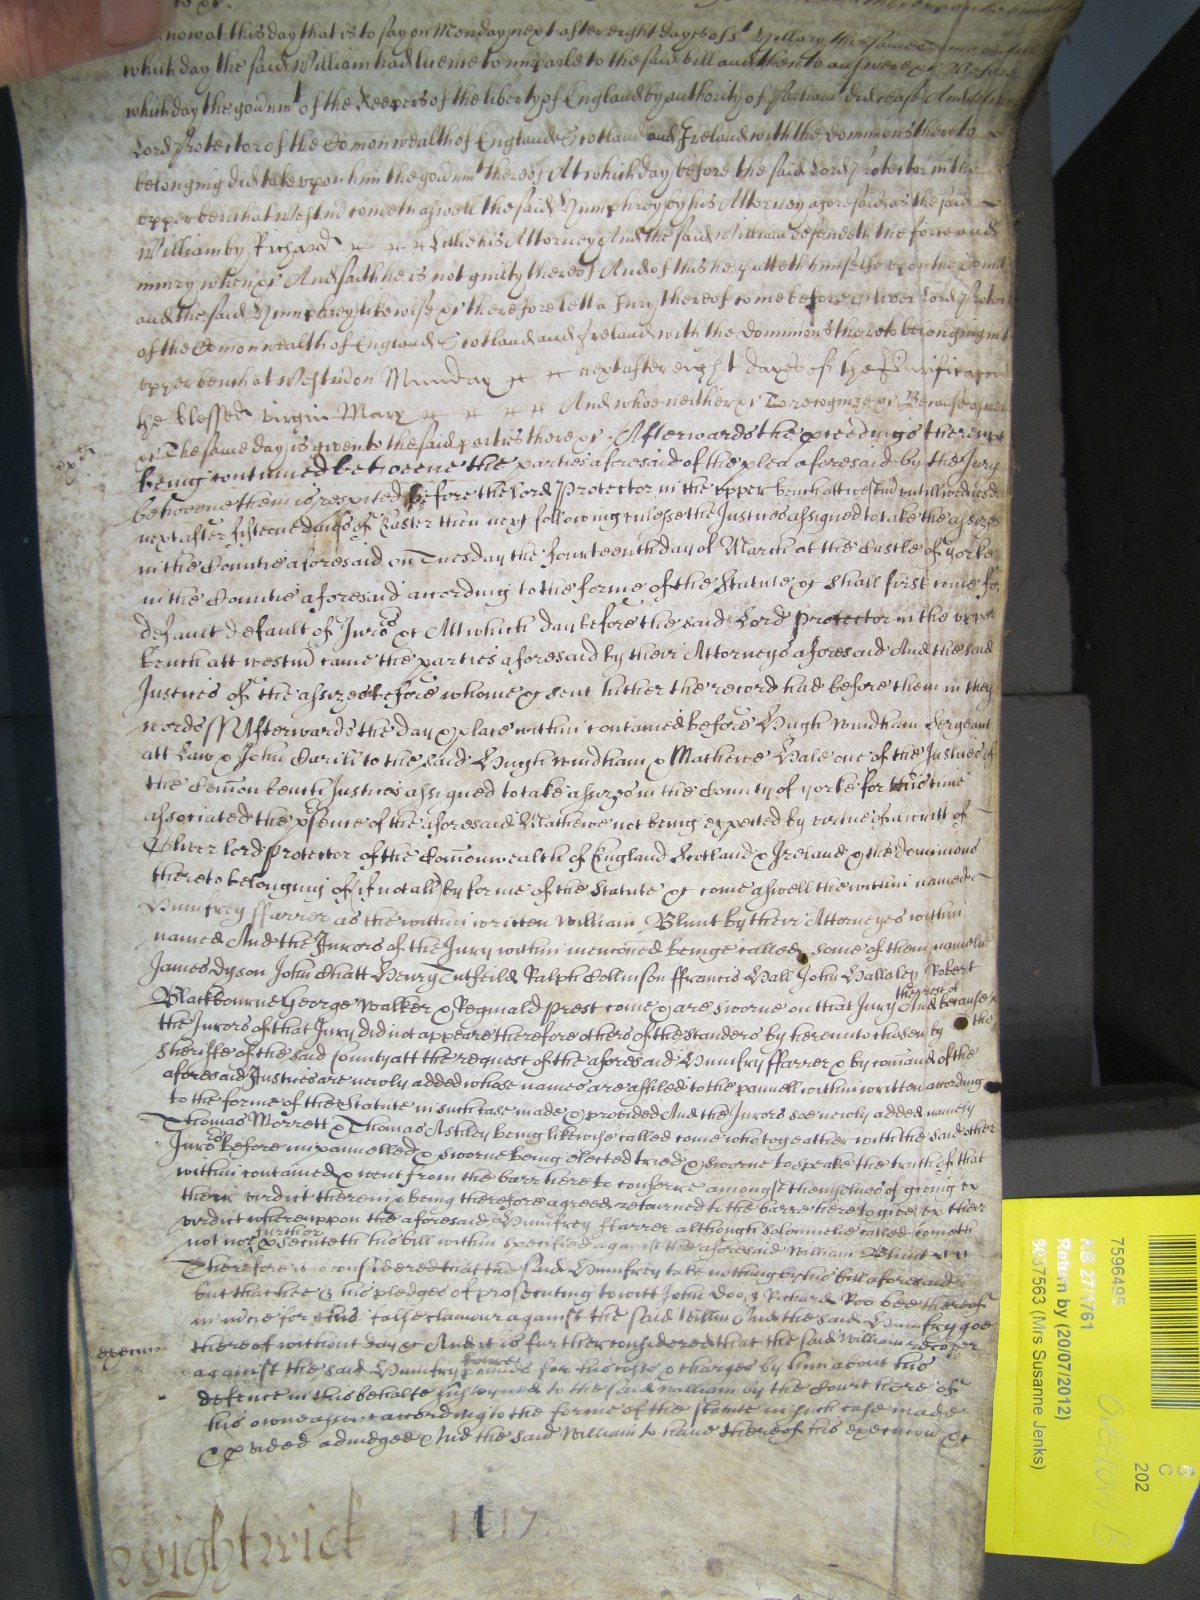 now at this day that is to say on Monday next after eight dayes of St Hillary this same Terme untill
which day the said William had lycence to imparle to the said bill and then to answere &c Before
which day the govermt of the Keepers of the liberty of England by authority of Parliamt did cease And
Lord Protector of the Comonwealth of England Scotland and Ireland with the dominions thereto
belonging did take upon him the govermt thereof At which day before the said Lord Protector in the
upper bench at Westm cometh aswell the said Humphrey by his Attorney aforesaid as the said
William by Richard Lillie his Attorney And the said William defendeth the force and
iniury when &c And saith he is not guilty thereof And of this he putteth himselfe upon the
and the said Humphrey likewise &c therefore lett a Jury thereof come before Oliver Lord Protector
of the Comonwealth of England Scotland and Ireland with the dominions thereto belonging in the
upper bench at Westm on Munday next after eight dayes of the Purificacon
the blessed virgin Mary And whoe neither &c To recognize &c Because aswell
&c The same day is given to the said parties there &c Afterwards the proceedings thereupon
being continued betweene the parties aforesaid of the plea aforesaid by the Jury
betweene them is respited before the Lord Protector in the upper bench att westm untill wednesday
next after fifteene dayes of Easter then next following unlesse the Justices assigned to take the assizes
in the Countie aforesaid on Tuesday the fourteenth day of March at the Castle of yorke
in the Countie aforesaid according to the forme of the Statute &c shall first come for
default default of Jurors &c Att which day before the said Lord Protector in the upper
bench att westm came the parties aforesaid by their Attorneys aforesaid And the said
Justices of the assizes before whome &c sent hither the record had before them in these
words ss Afterwards the day & place within contained before Hugh Windham Sergeant
att Law & John Darill to the said Hugh windham & Mathewe Hale one of the Justices of
the Comon bench Justices assigned to take assizes in the County of yorke for this time
associated the psence of the aforesaid Mathewe not being expected by vertue of a writt of
Oliver lord protector of the Comonwealth of England Scotland & Ireland & the dominions
thereto belonging of (if not all) by forme of the Statute &c come aswell the within named
Humfrey ffarrer as the within written William Blunt by their Attorneyes within
named And the Jurors of the Jury within mencioned beinge called some of them namelie
James Dyson John Chatt Henry Tutheild Ralph Collinson ffrancis Hall John Hallaley Robert
Blackbourne George Walker & Reginald Prest come & are sworne on that Jury And because
the rest of
the Jurors of that Jury did not appeare therefore others of the standers by hereunto chosen by the
Sheriffe of the said County att the request of the aforesaid Humfry ffarrer & by comand of the
aforesaid Justices are newly added whose names are affiled to the pannell within written according
to the forme of the Statute in such case made & provided And the Jurors soe newly added namely
Thomas Morrett & Thomas Astley being likewise called come who togeather with the said other
Jurors before impannelled & sworne being elected tried & sworne to speake the truth of that
within contained & went from the barr here to conferre amongst themselves of giving up
their verdict therein & being therefore agreed returned to the barre here to give up their
verdict whereuppon the aforesaid Humfrey ffarrer although solemnelie called cometh
not nor further psecuteth his bill within specified against the aforesaid William Blunt
Therefore it is considered that the said Humfrey take nothing by his bill aforesaid
but that hee & his pledges of prosecuting to witt John Doo & Richard Roo bee thereof
in mcie for this false clamour against the said William And the said Humfry goe
thereof without day &c And it is further considered that the said William recover
execucon
against the said Humfry pounds for his costs & charges by him about his
defence in this behalfe susteyned to the said William by the Court here of
his owne assent according to the forme of the statute in such case made
& pvided adiudged And the said William to have thereof his execucon &c
Wightwick 1117
7596495
KB 27/1761
Return by (20/07/2012)
8037563 (Mrs Susanne Jenks)
G
C
202